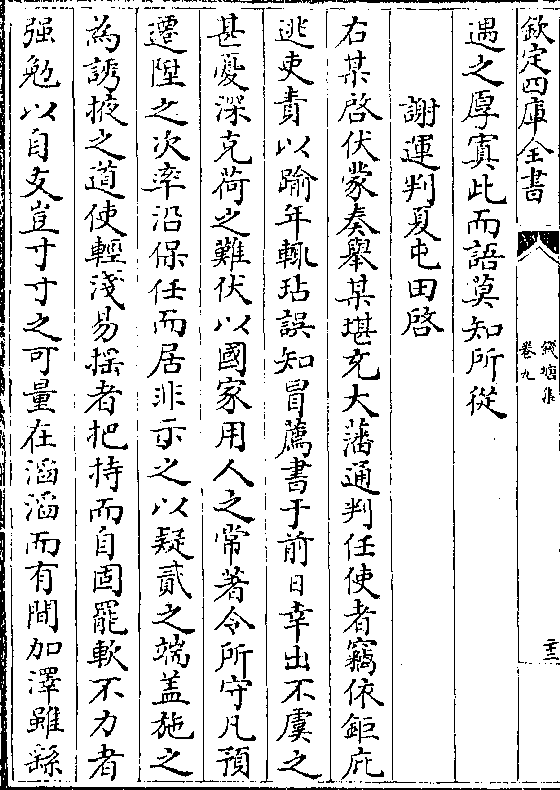 欽定四庫全書
錢塘集
卷九
二十三
遇之厚寘此而語莫知所從
謝運判夏屯田啓
右某啓伏蒙奏舉某堪充大藩通判任使者竊依鉅庇
逃吏責以踰年輒玷誤知冒薦書于前日幸出不虞之
甚憂深克荷之難伏以國家用人之常著令所守凡預
遷陞之次率沿保任而居非示之以疑貳之端盖施之
為誘掖之道使輕淺易揺者把持而自固罷軟不力者
强勉以自支豈寸寸之可量在滔滔而有間加澤雖繇